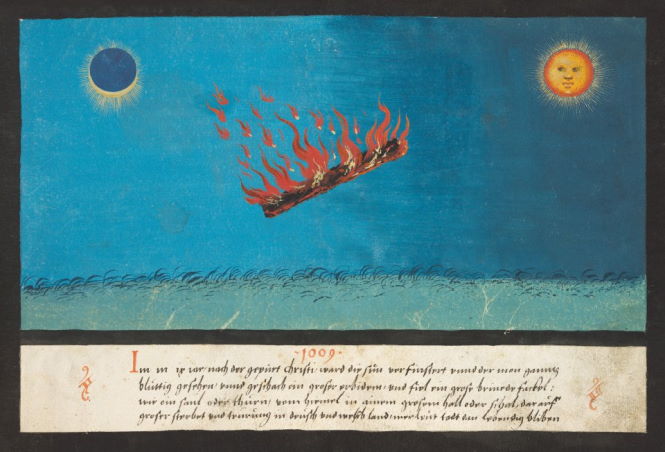 ·1009·
Im m ix iar nach der gepurt Christi ward die sün verfinstert vnnd der mon ganntz
blüttig gesehen vnnd geschach ein groser erbidem vnd fiel ein grose brinede fackel:
wie ein saul oder thurn vom hiemel in ainem grosem hall oder schal dar auff
groser sterbet vnd in deüsch vnd welsch land bliben